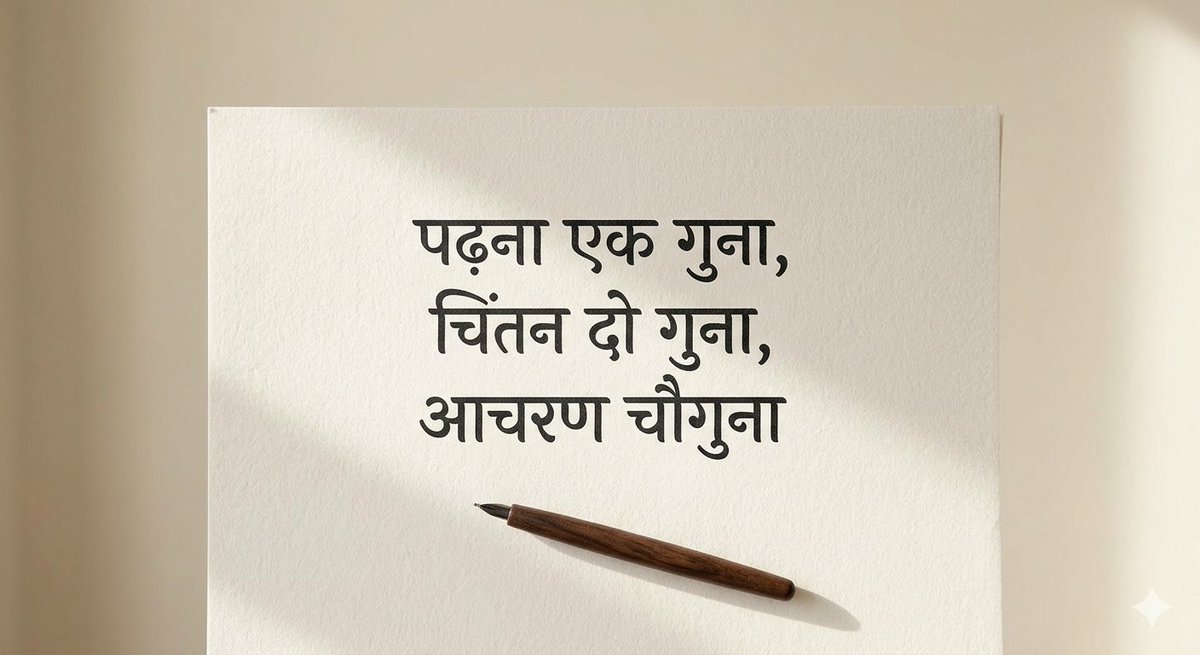 पढ़ना एक गुना,
चिंतन दो गुना,
आचरण चौगुना